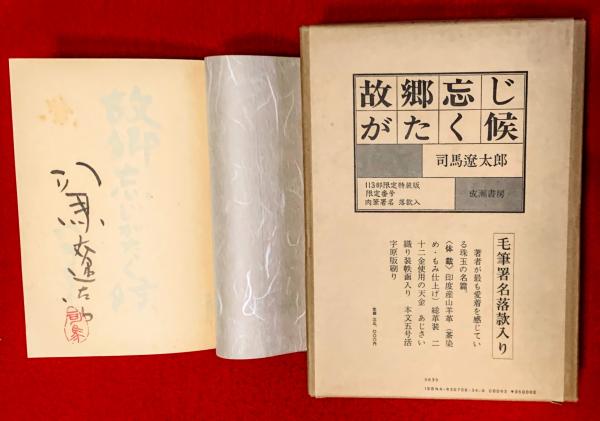 司馬遼太郎
司馬
故郷忘じ
がたく候
司馬遼太郎
113部限定特装版
限定番号
肉筆署名 落款入
成瀬書房
毛筆署名落款入り
著者が最も愛着を感じてい
る珠玉の名篇
〈体裁〉印度産山羊革(茶染
め・もみ仕上げ)総革装 二
十二金使用の天金 あじさい
織り装帙画入り 本文五号活
字原版刷り